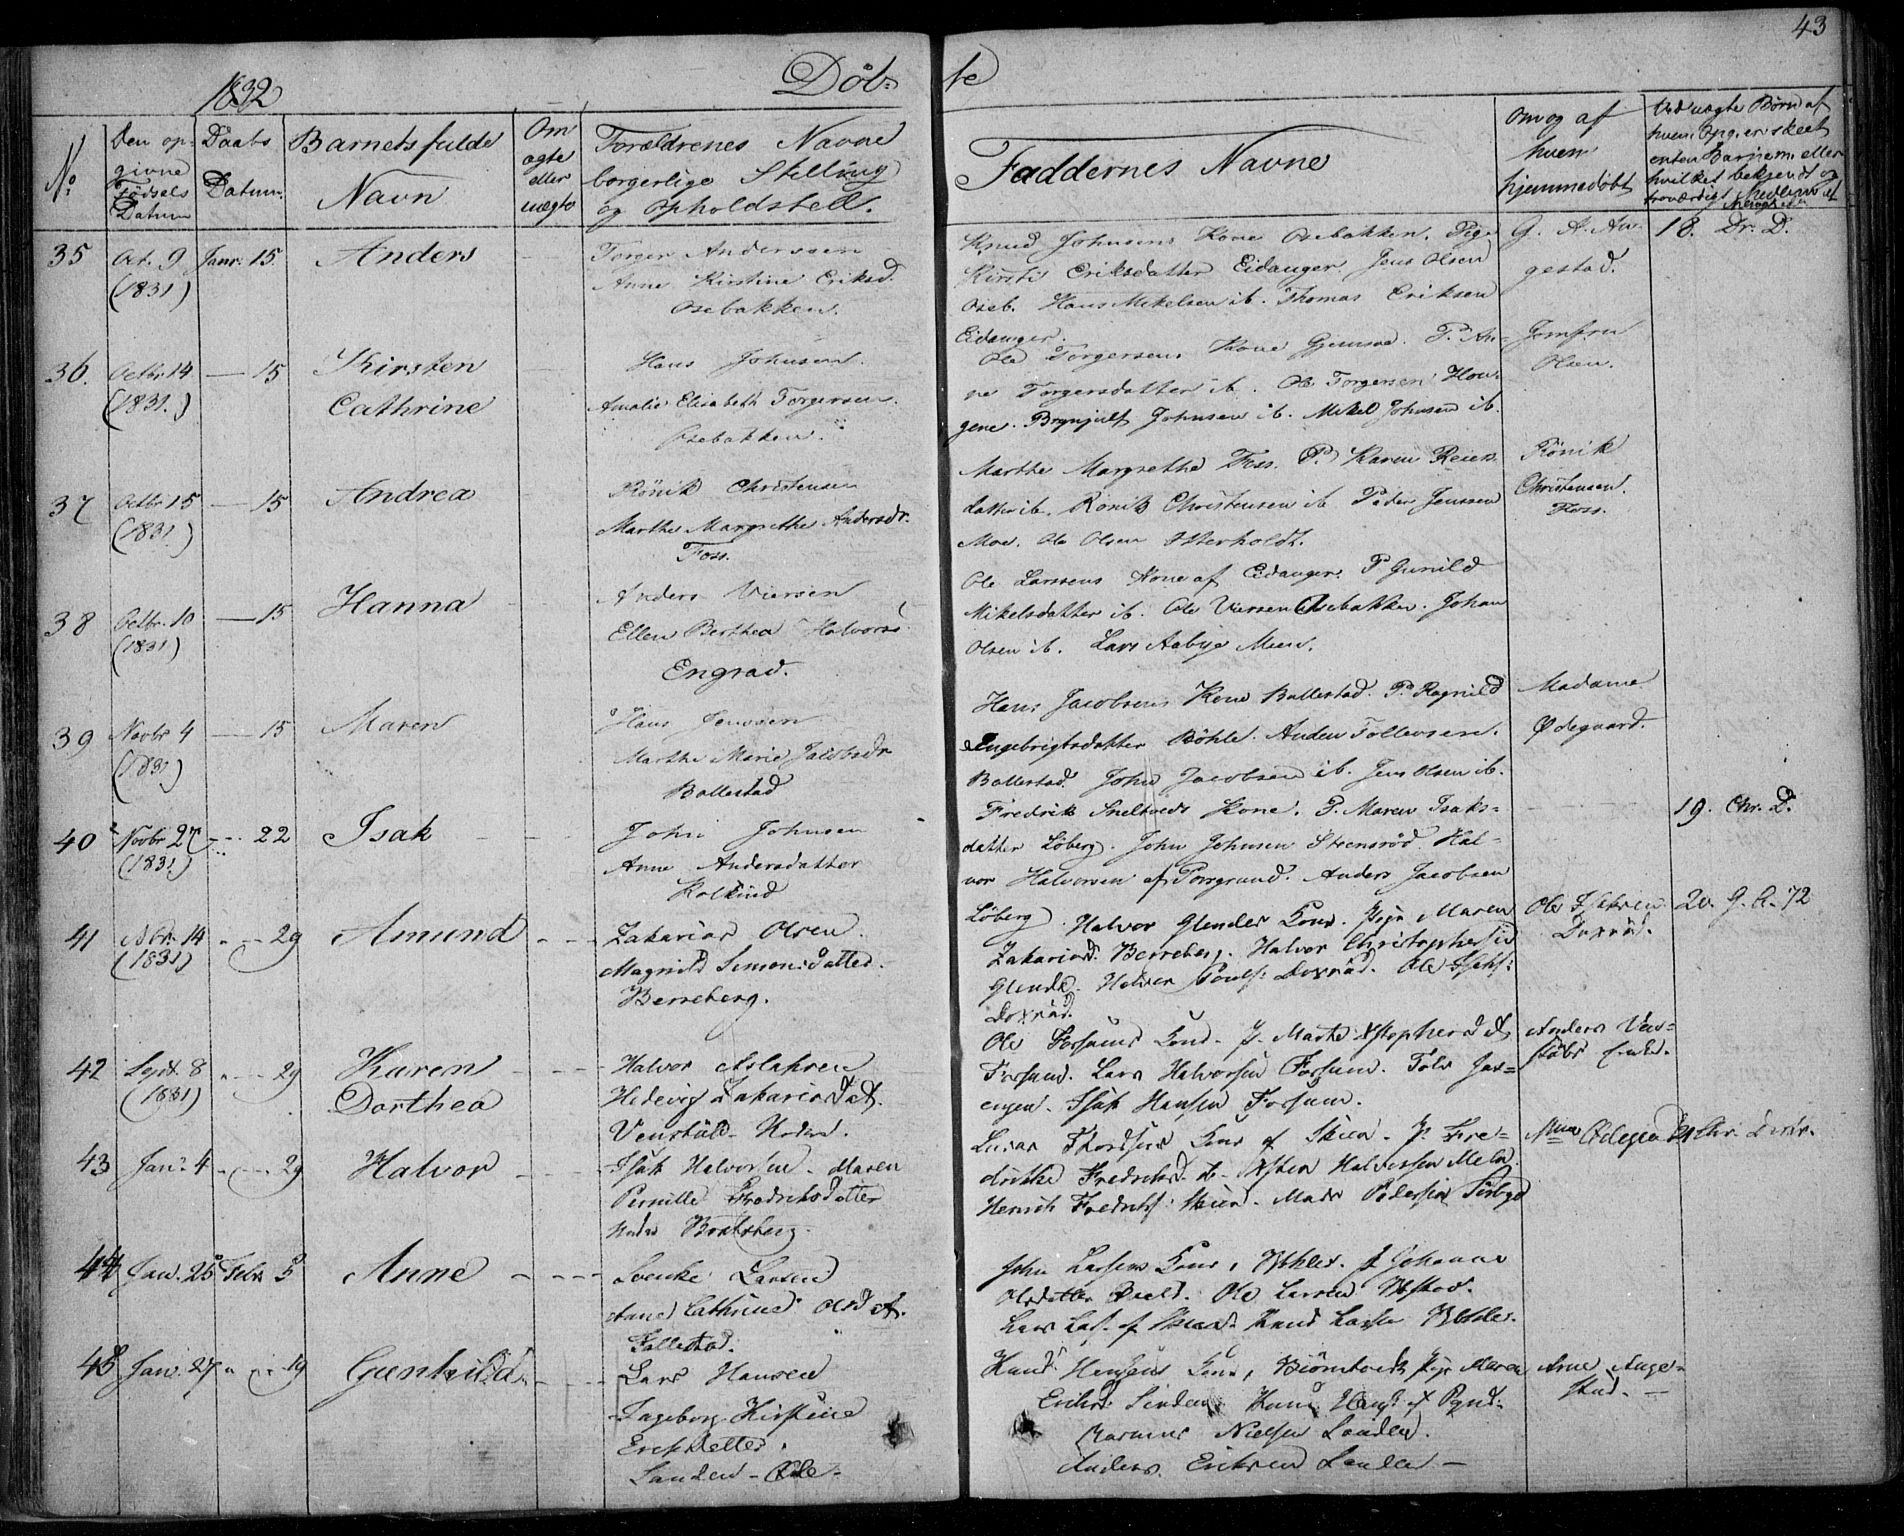 43
1832
Døb-
te
No:
Den op-
givne
Fødsels
Datum
Daabs
Datum.
Barnets fulde
Navn
Om
ægte
eller
uægte
Forældrenes Navne
borgerlige Stilling
og Opholdsted.
Faddernes Navne
Om og af
hvem
hjemmedøbt
Ved uægte Børn af
hvem Opg. er skeet
enten Barnem. eller
hvilket bekjendt og
troværdigt
35
Oct. 9
(1831)
Janr. 15.
Anders
Torger Anderssen
Anne Kirstine Eriksd.
Osebakken.
Knud Johnsens Kone Osebakken. Pige
Kirsti Eriksdatter Eidanger. Jens Olsen
Oseb. Hans Mikelsen ib. Thomas Eriksen
Eidanger.
G. A. An-
gestad.
18. Dr. D.
36.
Octbr 14
(1831.)
— 15
Kirsten
Cathrine
Hans Johnsen
Amalie Elisabeth Torgersen.
Osebakken.
Ole Torgersens Kone Gjemsø. P. An-
ne Torgersdatter ib. Ole Torgersen Hou-
gene. Brynjulf Johnsen ib. Mikel Johnsen ib.
Jomfru
Olsen.
37
Octbr 15
(1831)
— 15
Andrea
Rönik Christensen
Marthe Margrethe Andersdr.
Foss.
Marthe Margrethe Foss. P. Karen Reiers-
datter ib. Rönik Christensen ib. Peder Jenssen
Moe. Ole Olsen Itterholdt.
Rönik
Christensen.
Foss.
38
Octbr. 10
(1831)
— 15
Hanna
Anders Viersen
Ellen Berthea Halvors.
Engrad.
Ole Larssens Kone af Eidanger. P. Gunild
Mikelsdatter ib. Ole Viersen Osebakken. Johan
Olsen ib. Lars Aabye Meen.
39
Novbr 4
(1831)
— 15
Maren
Hans Jenssen
Marthe Marie Jacobsdr
Ballestad
Hans Jacobsens Kone Ballestad. P. Ragnild
Engebrigtsdatter Bøhle. Anders Tollevsen.
Ballestad. John Jacobsen ib. Jens Olsen ib.
Madame
Ødegaard.
40
Novbr 27
(1831.)
— 22
Isak
John Johnsen
Anne Andersdatter
Kolkind
Fredrik Sneltvedts Kone. P. Maren Isaks-
datter Løberg. John Johnsen Steensrød. Hal-
vor Halvorsen af Porsgrund. Anders Jacobsen
Løberg
19. Chr. D.
41
Nbr. 14
(1831)
— 29
Amund
Zakarias Olsen.
Magnild Simonsdatter.
Berreberg.
Halvor Glendes Kone. Pige Maren
Zakariasd. Berreberg. Halvor Christophersen
Glende. Halvor Pouls. Doxrød. Ole Isaks:
Doxrød.
Ole Isaksen
Doxrød.
20. G. A. 72
42
Sept. 8
(1831)
— 29
Karen
Dorthea
Halvor Aslaksen
Hedevig Zakariasdat.
Venstøb
Ole Forsums Kone. P. Marte Xstophersdat.
Forsum. Lars Halvorsen Forsum. Tolv
Isak Hansen Forsum.
Anders Ven-
støbs Enke.
43
Jan. 4
— 29
Halvor
Isak Halvorsen. Maren
Pernille Fredriksdatter
Bratsberg.
Kone af Skien. P. Fre-
drikke Fredriksd. ib. Halvorsen
Henrik Fredriks. Skien. Mads Pedersen
44
Jan. 25
Febr. 5
Anne
Svenke Larsen
Anne Cathrine Olsdat.
Follestad.
John Larsens Kone, P. Johanne
Olsdatter Ole Larsen
Lars Las. af Skien. Knud Larsen
45
Jan. 27
— 19
Gunhild
Lars Hansen
Ingeborg Kirstine
Ericsdatter.
Sanden -
Hansens Kone, Biørntvedt Pige Maren
Ericsd. Sanden.
Rasmus Nielsen Sanden.
Anders Eriksen Sanden —
Arne Ange-
stad. —